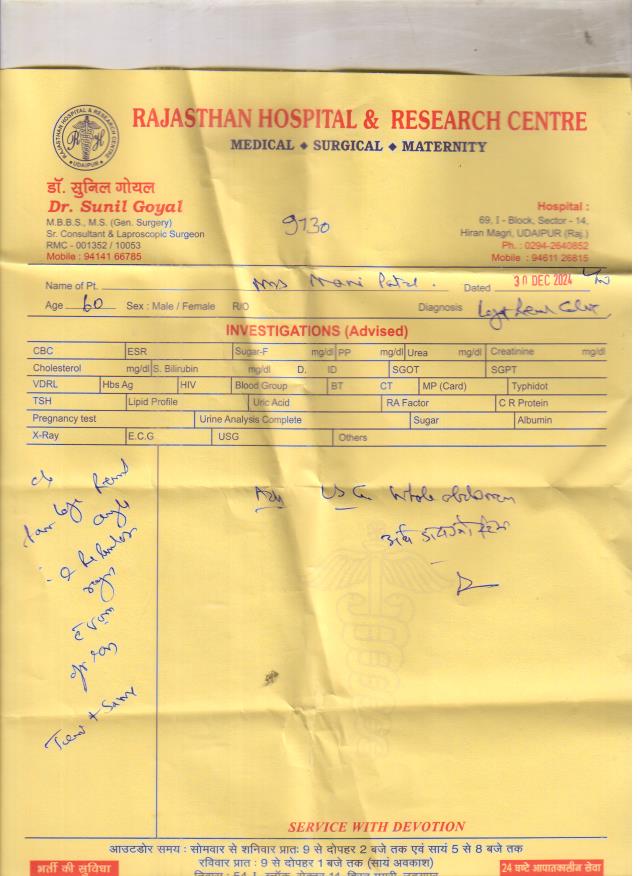 RAJASTHAN HOSPITAL & RESEARCH CENTRE
UDAIPUR
RAJASTHAN HOSPITAL & RESEARCH CENTRE
MEDICAL ◆ SURGICAL ◆ MATERNITY
डॉ. सुनिल गोयल
Dr. Sunil Goyal
M.B.B.S., M.S. (Gen. Surgery)
Sr. Consultant & Laproscopic Surgeon
RMC - 001352 / 10053
Mobile : 94141 66785
9730
Hospital :
69, I - Block, Sector - 14,
Hiran Magri, UDAIPUR (Raj.)
Ph. : 0294-2640852
Mobile : 94611 26815
Name of Pt. Mani Dated 30 DEC 2024
Age 60 Sex : Male / Female R/O Diagnosis
INVESTIGATIONS (Advised)
CBC ESR Sugar-F mg/dl PP mg/dl Urea mg/dl Creatinine mg/dl
Cholesterol mg/dl S. Bilirubin mg/dl D. ID SGOT SGPT
VDRL Hbs Ag HIV Blood Group BT CT MP (Card) Typhidot
TSH Lipid Profile Uric Acid RA Factor C R Protein
Pregnancy test Urine Analysis Complete Sugar Albumin
X-Ray E.C.G USG Others
c/o
Adv USG Whole abdomen
SERVICE WITH DEVOTION
आउटडोर समय : सोमवार से शनिवार प्रातः 9 से दोपहर 2 बजे तक एवं सायं 5 से 8 बजे तक
रविवार प्रात : 9 से दोपहर 1 बजे तक (सायं अवकाश)
भर्ती की सुविधा
24 घण्टे आपातकालीन सेवा